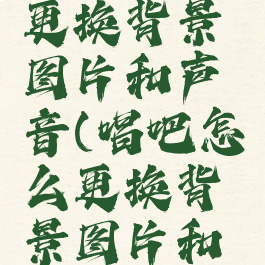 更换背景
图片和声
音(唱吧怎
么更换背
景图片和